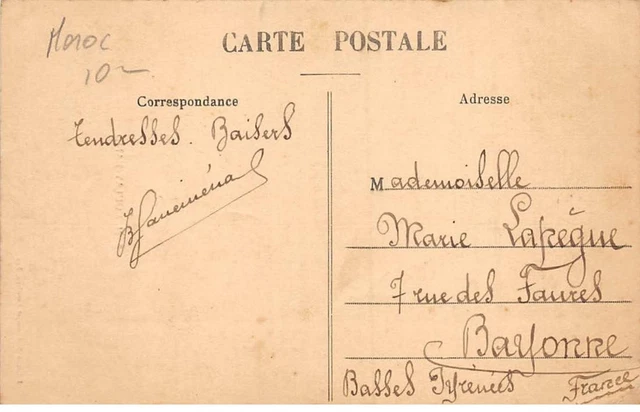 Maroc
10-
CARTE POSTALE
Correspondance
Tendresses. Baisers
Adresse
Mademoiselle
Marie Lapègue
7 rue des Faures
Bayonne
Basses Pyrénées
France